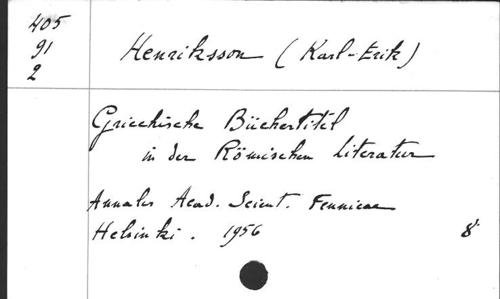 405
91
2
Henriksson (Karl-Erik)
Griechische Büchertitel
in der Römischen Literatur
Annales Acad. Scient. Fennicae
Helsinki. 1956 8°